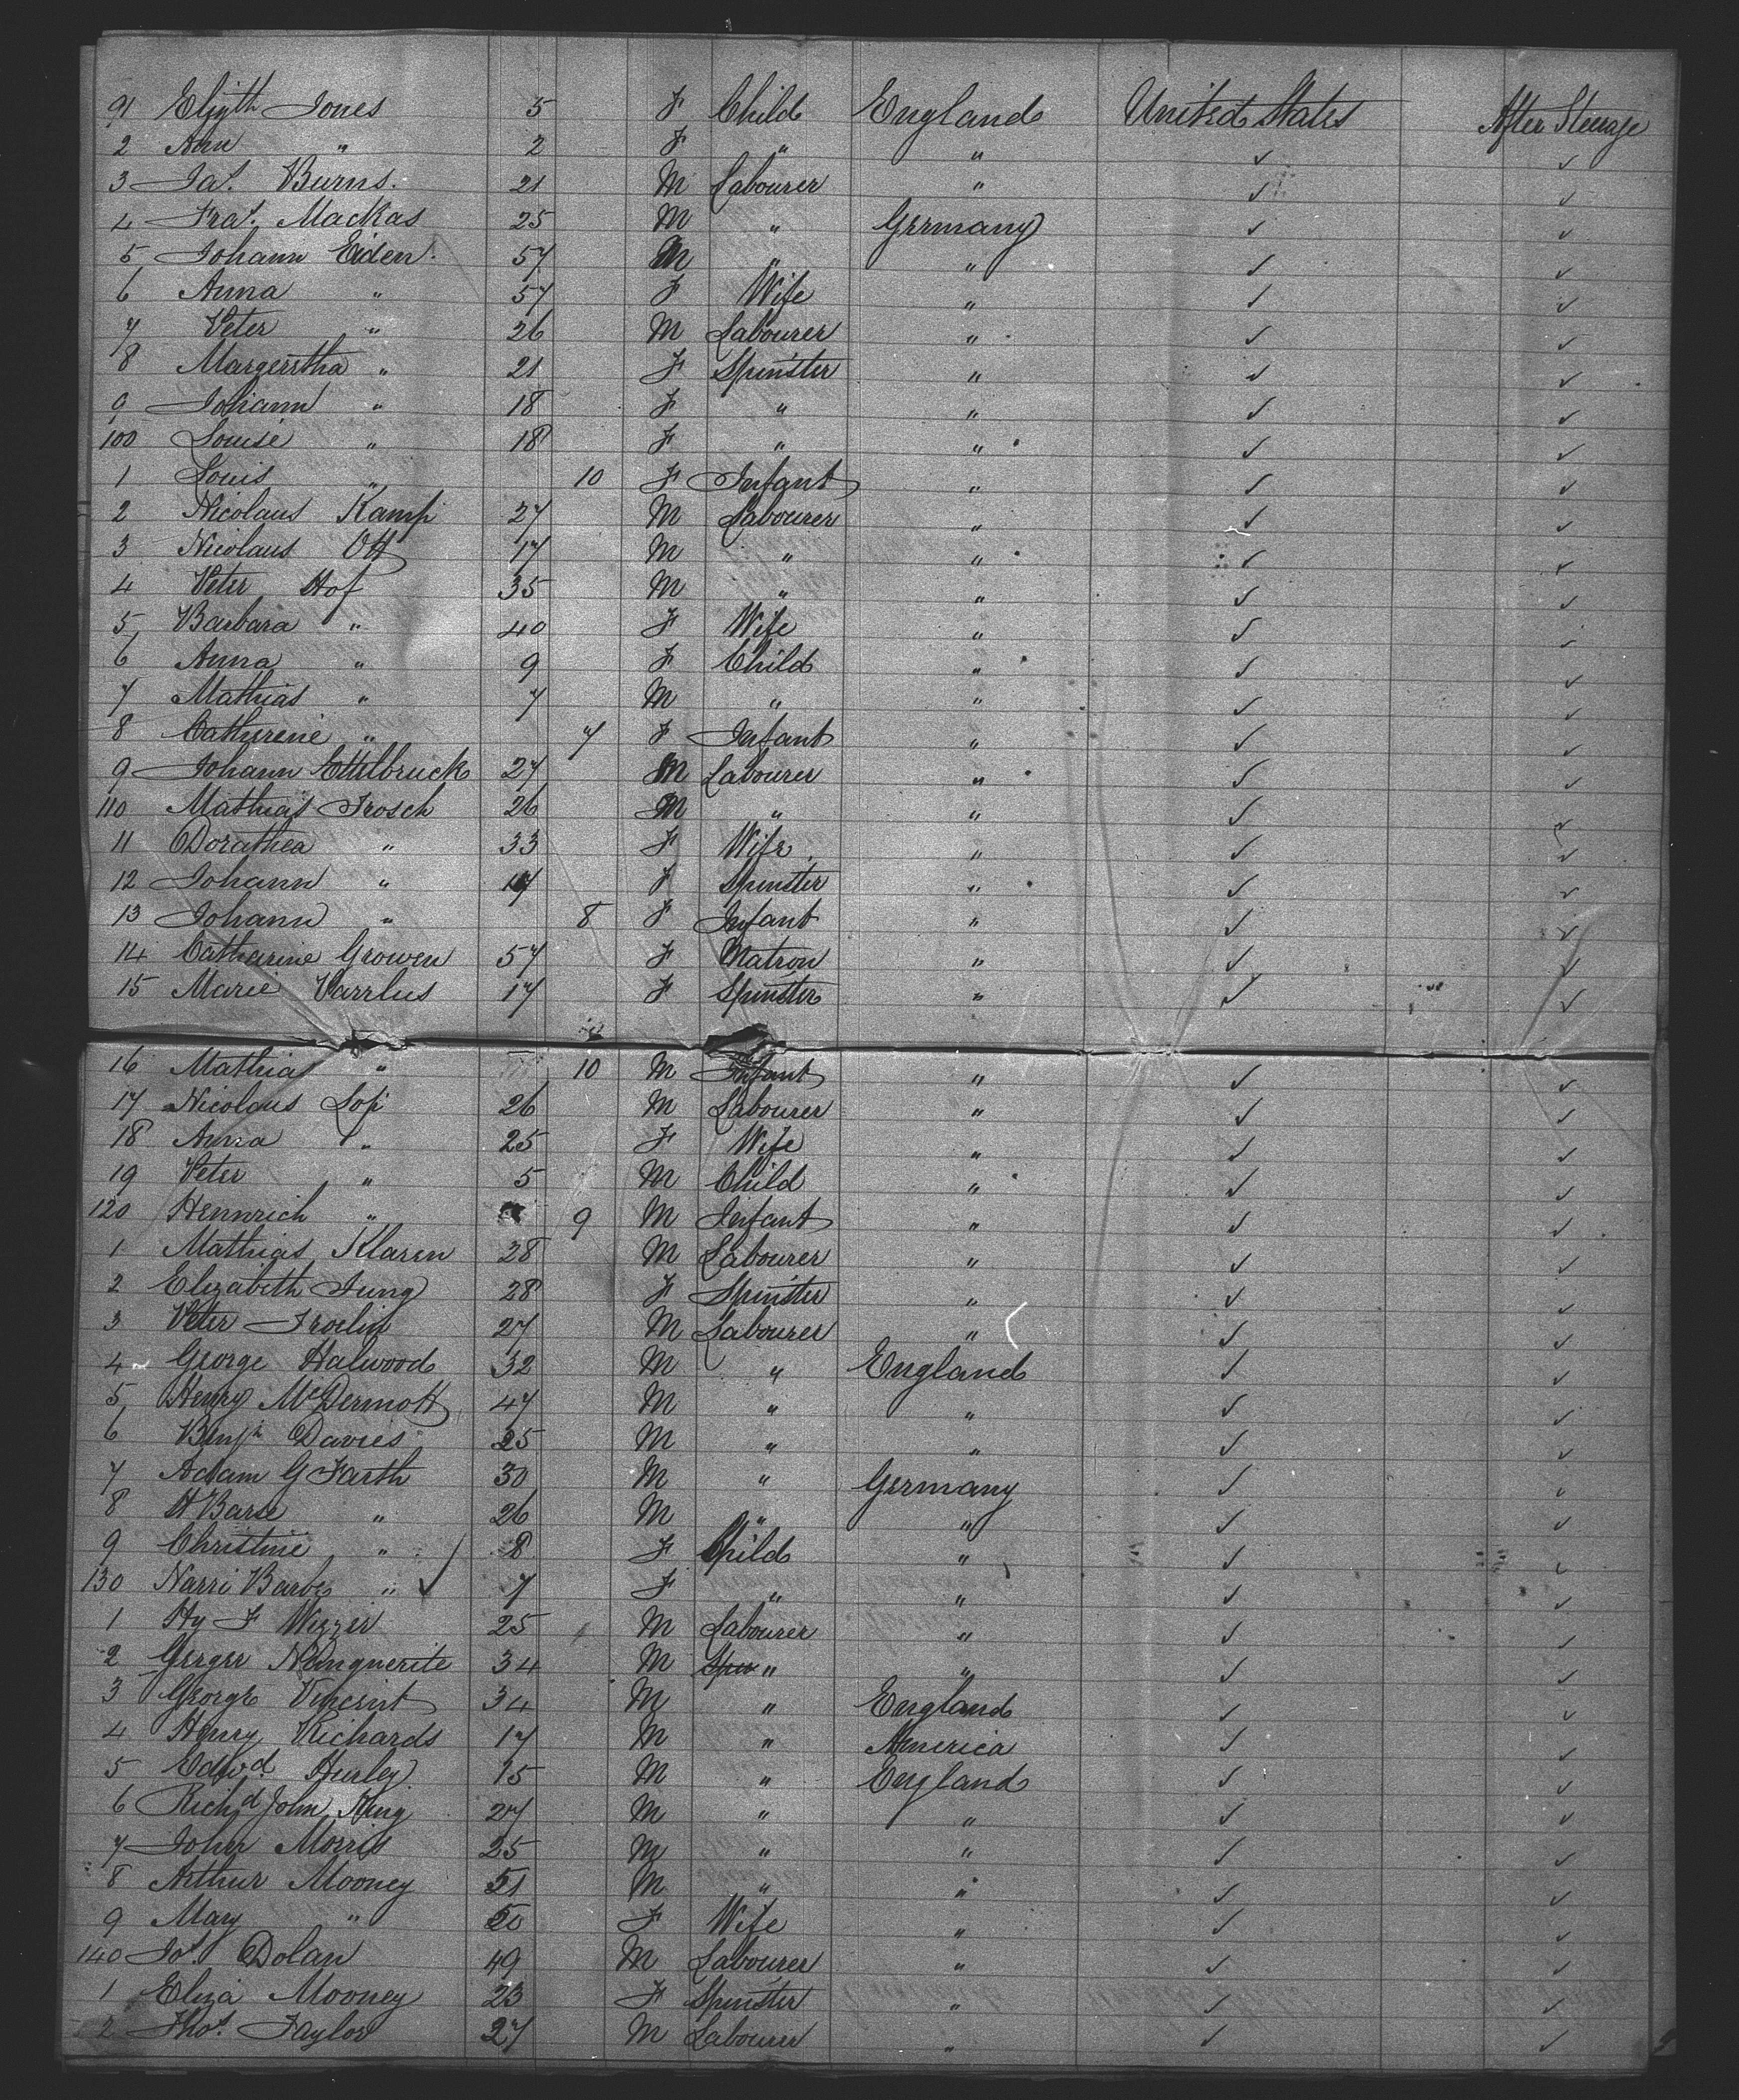 91 Elizth Jones 5 F Child England United States After Steerage
2 Ann " 2 F " " ✓ ✓
3 Jas. Burns. 21 M Labourer " ✓ ✓
4 Fras. Mackas 25 M " Germany ✓ ✓
5 Johann Eiden 57 M " " ✓ ✓
6 Anna " 57 F Wife " ✓ ✓
7 Peter " 26 M Labourer " ✓ ✓
8 Margerstha " 21 F Spinster " ✓ ✓
9 Johann " 18 F " " ✓ ✓
100 Louise " 18 F " " ✓ ✓
1 Louis " 10 F Infant " ✓ ✓
2 Nicolaus Kamp 27 M Labourer " ✓ ✓
3 Nicolaus Ott 17 M " " ✓ ✓
4 Peter Hof 35 M " " ✓ ✓
5 Barbara " 40 F Wife " ✓ ✓
6 Anna " 9 F Child " ✓ ✓
7 Mathias " 7 M " " ✓ ✓
8 Catherine " 7 F Infant " ✓ ✓
9 Johann Ettelbruck 27 M Labourer " ✓ ✓
110 Mathias Frosch 26 M " " ✓ ✓
11 Dorathea " 33 F Wife " ✓ ✓
12 Johann " 17 F Spinster " ✓ ✓
13 Johann " 8 F Infant " ✓ ✓
14 Catharine Growen 57 F Matron " ✓ ✓
15 Marie Varrlus 17 F Spinster " ✓ ✓
16 Mathias " 10 M Infant " ✓ ✓
17 Nicolaus Lop 26 M Labourer " ✓ ✓
18 Anna " 25 F Wife " ✓ ✓
19 Peter " 5 M Child " ✓ ✓
120 Hennrich " 9 M Infant " ✓ ✓
1 Mathias Klaren 28 M Labourer " ✓ ✓
2 Elizabeth Jung 28 F Spinster " ✓ ✓
3 Peter 27 M Labourer " ✓ ✓
4 George Halwood 32 M " England ✓ ✓
5 Henry McDermott 47 M " " ✓ ✓
6 Benjn Davies 25 M " " ✓ ✓
7 Adam G Farth 30 M " Germany ✓ ✓
8 H Barse " 26 M " " ✓ ✓
9 Christine " 8 F Child " ✓ ✓
130 Narri Barbe " ✓ 7 F " " ✓ ✓
1 Hy F Wezzir 25 M Labourer " ✓ ✓
2 34 M " " ✓ ✓
3 George Vincent 34 M " England ✓ ✓
4 Henry Richards 17 M " America ✓ ✓
5 Edwd. Hurley 15 M " England ✓ ✓
6 Richd John King 27 M " " ✓ ✓
7 John Morris 25 M " " ✓ ✓
8 Arthur Mooney 51 M " " ✓ ✓
9 Mary " 50 F Wife " ✓ ✓
140 Jos Dolan 49 M Labourer " ✓ ✓
1 Eliza Mooney 23 F Spinster " ✓ ✓
2 Thos. Taylor 27 M Labourer " ✓ ✓